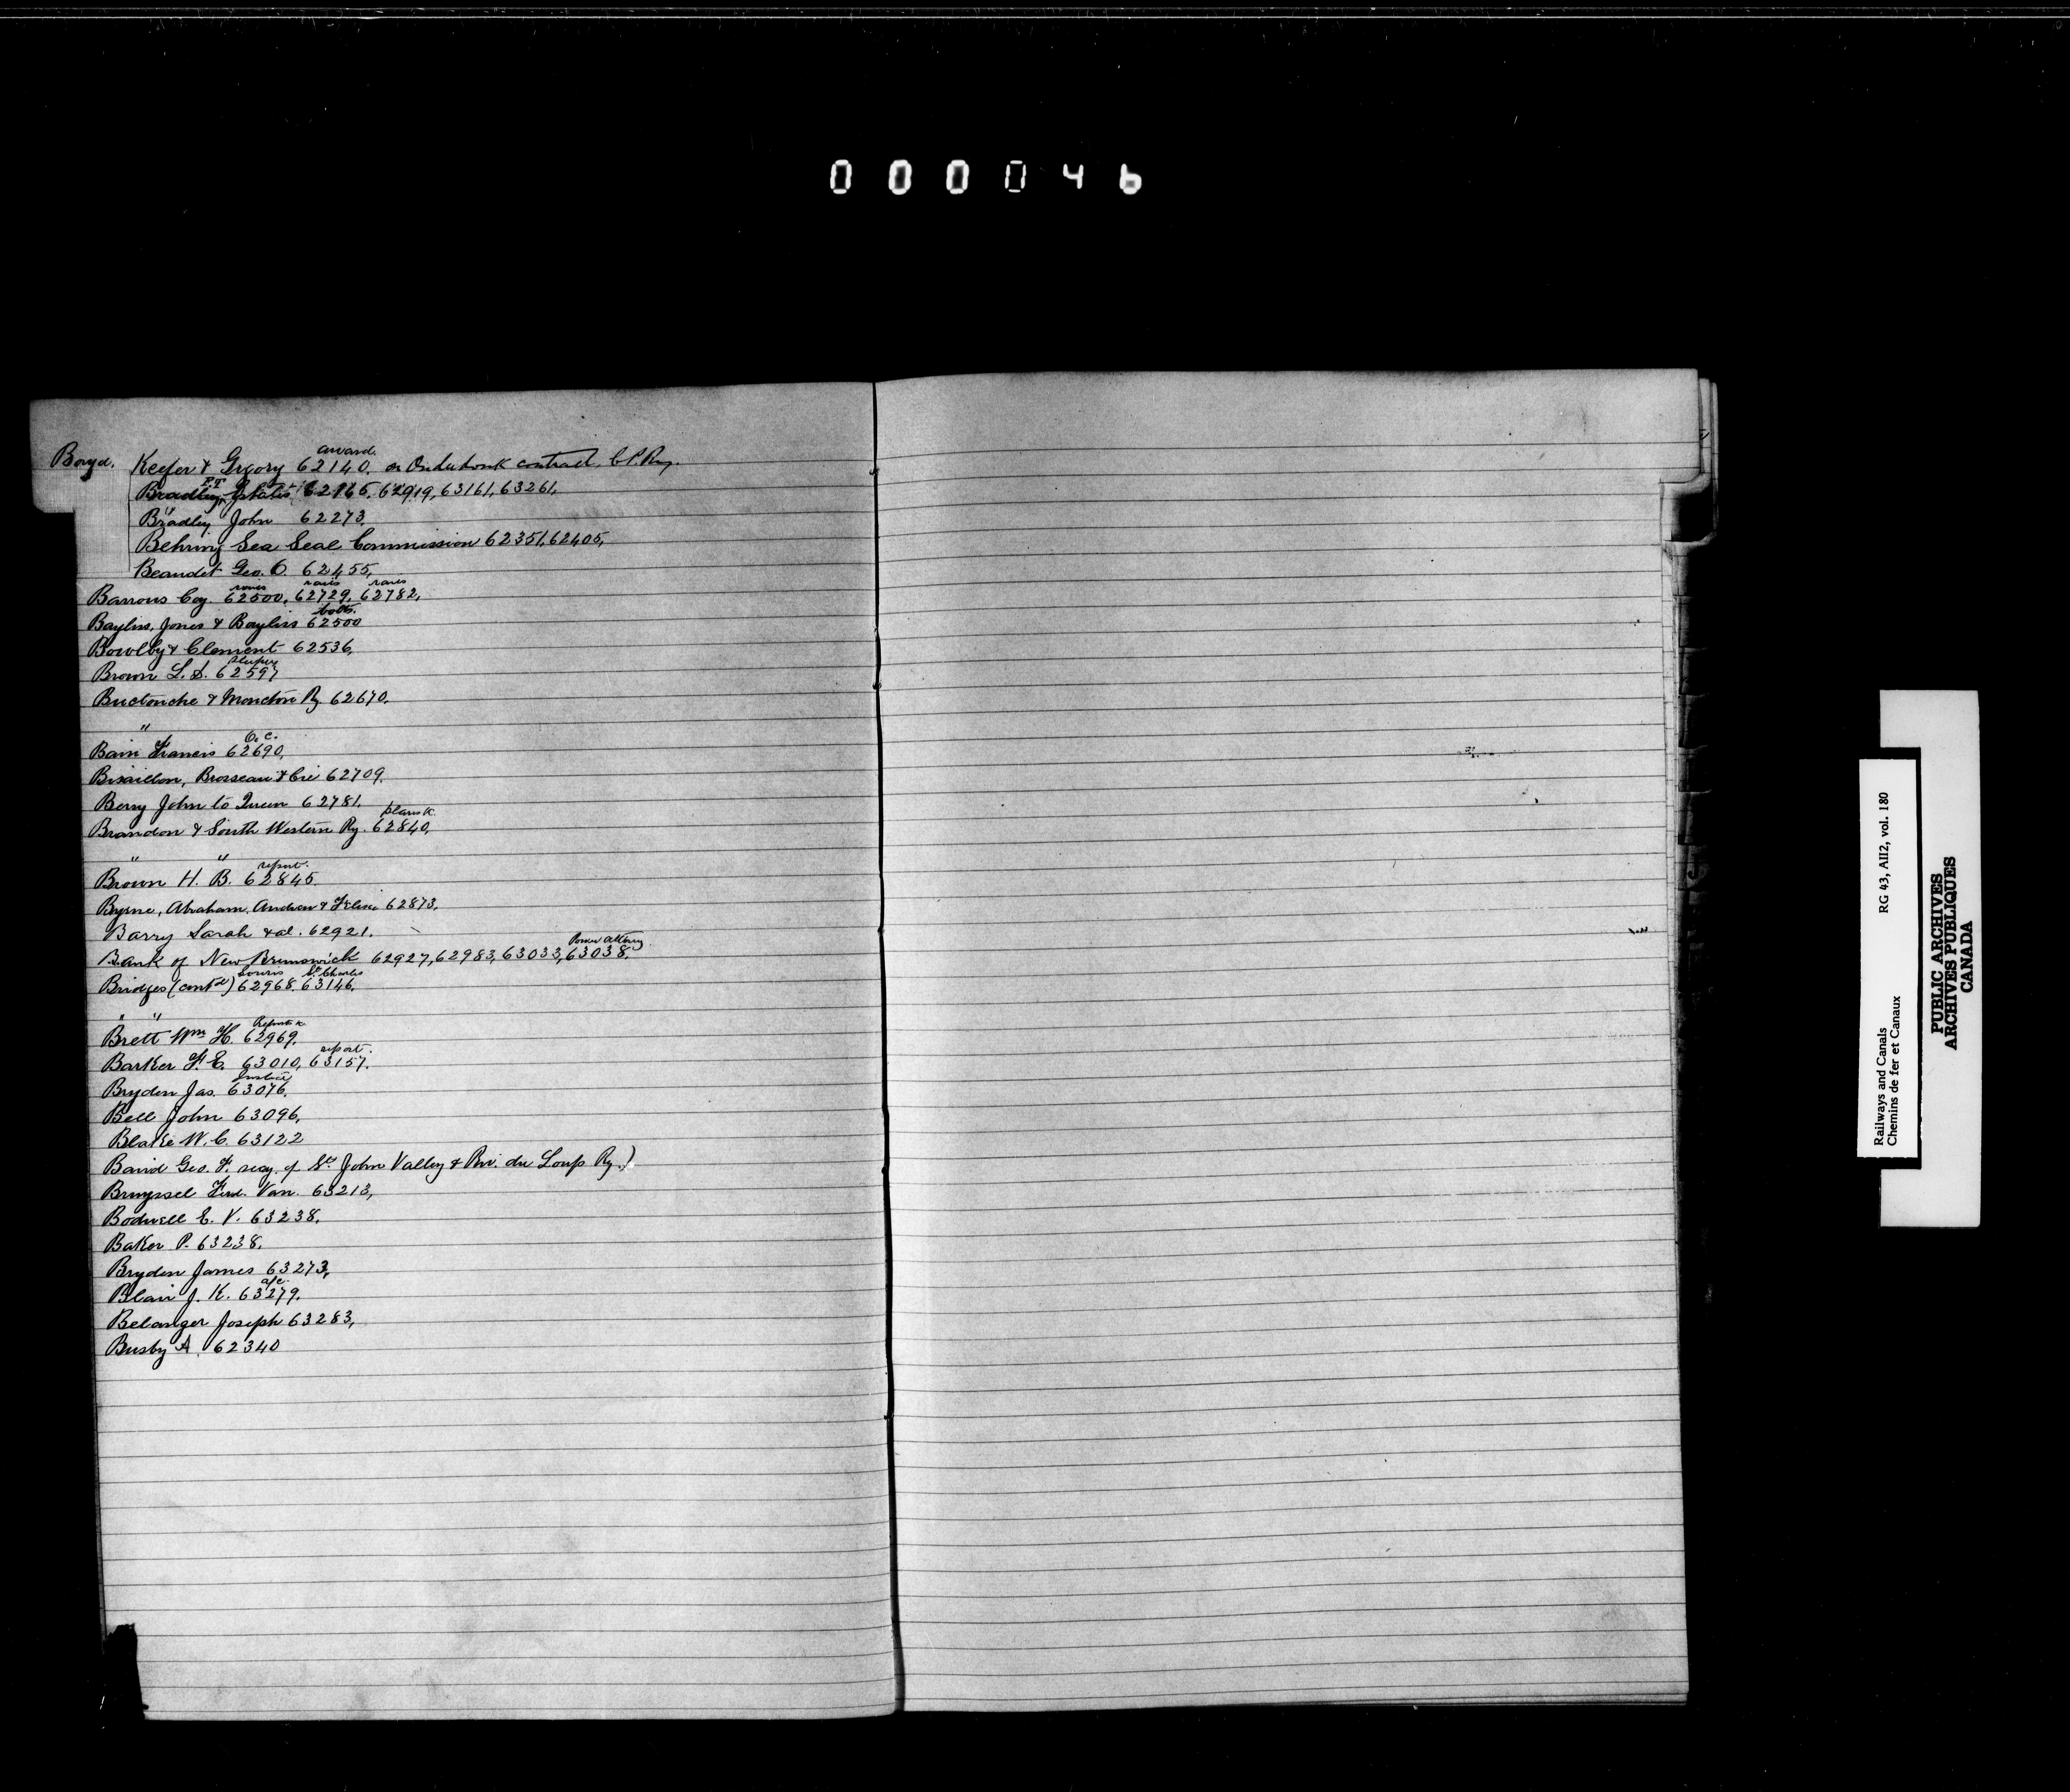 000046
award.
Boyd. Keefer & Gregory 62140. on Onderdonk contract, C.P. Ry.
P.T.
Bradley Estate 62165. 62919, 63161, 63261,
Bradley John 62273.
Behring Sea Seal Commission 62351, 62405,
Beaudet Geo. O. 62455,
rails rails
Barrows Coy 62500, 62729, 62782,
bolts.
Bayliss, Jones & Bayliss 62500
Bowlby & Clement 62536,
Brown L. S. 62597
Buctouche & Moncton Ry. 62670.
"
O. C.
Bain Francis 62690,
Bisaillon, Brosseau & Cie 62709.
Berry John to Queen 62781.
plans &c
Brandon & South Western Ry. 62840,
" "
report.
Brown H. B. 62845.
Byrne, Abraham, Andrew & 62873.
Barry Sarah & al. 62921.
Power Attorney.
Bank of New Brunswick 62927, 62983, 63033, 63038.
Souris St. Charles
Bridges (contd) 62968. 63146.
" "
Report &c
Brett Wm H. 62969.
report.
Barker F. E. 63010, 63157.
Bryden Jas. 63076.
Bell John 63096,
Blake W. C. 63122
Baird Geo. F. secy. of St. John Valley & Riv. du Loup Ry.)
Bruyssel Ferd. Van. 63213,
Bodwell E. V. 63238.
Baker P. 63238.
Bryden James 63273,
a/c.
Blair J. K. 63279.
Belanger Joseph 63283,
Busby A. 62340
Railways and Canals RG 43, AII2, vol. 180
Chemins de fer et Canaux
PUBLIC ARCHIVES
ARCHIVES PUBLIQUES
CANADA